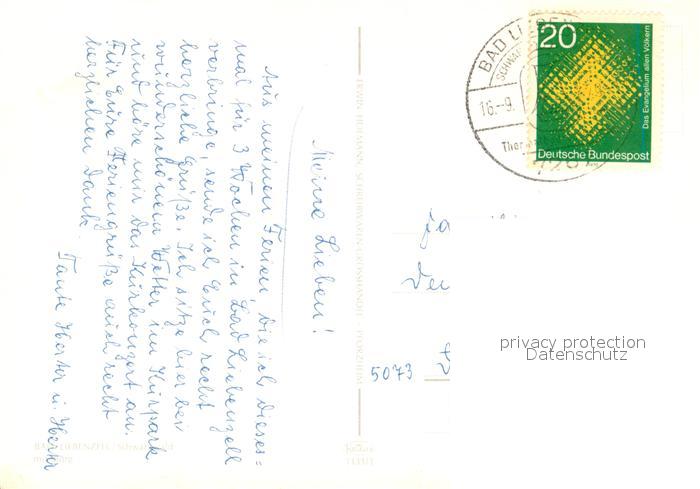 Meine Lieben!
Aus meinen Ferien, die ich dieses=
mal für 3 Wochen in Bad Liebenzell
verbringe, sende ich Euch recht
herzliche Grüße. Ich sitze hier bei
wunderschönem Wetter im Kurpark
und höre mir das Kurkonzert an.
Für Eure Feriengrüße auch recht
herzlichen Dank.
Tante Herta u.
ERWIN HERMANN, SCHREIBWAREN-GROSSHANDEL PFORZHEIM
BAD LIEBENZELL / Schwarzwald
BAD
16.-9.
20
Das Evangelium allen Völkern
Deutsche Bundespost
5073
privacy protection
Datenschutz